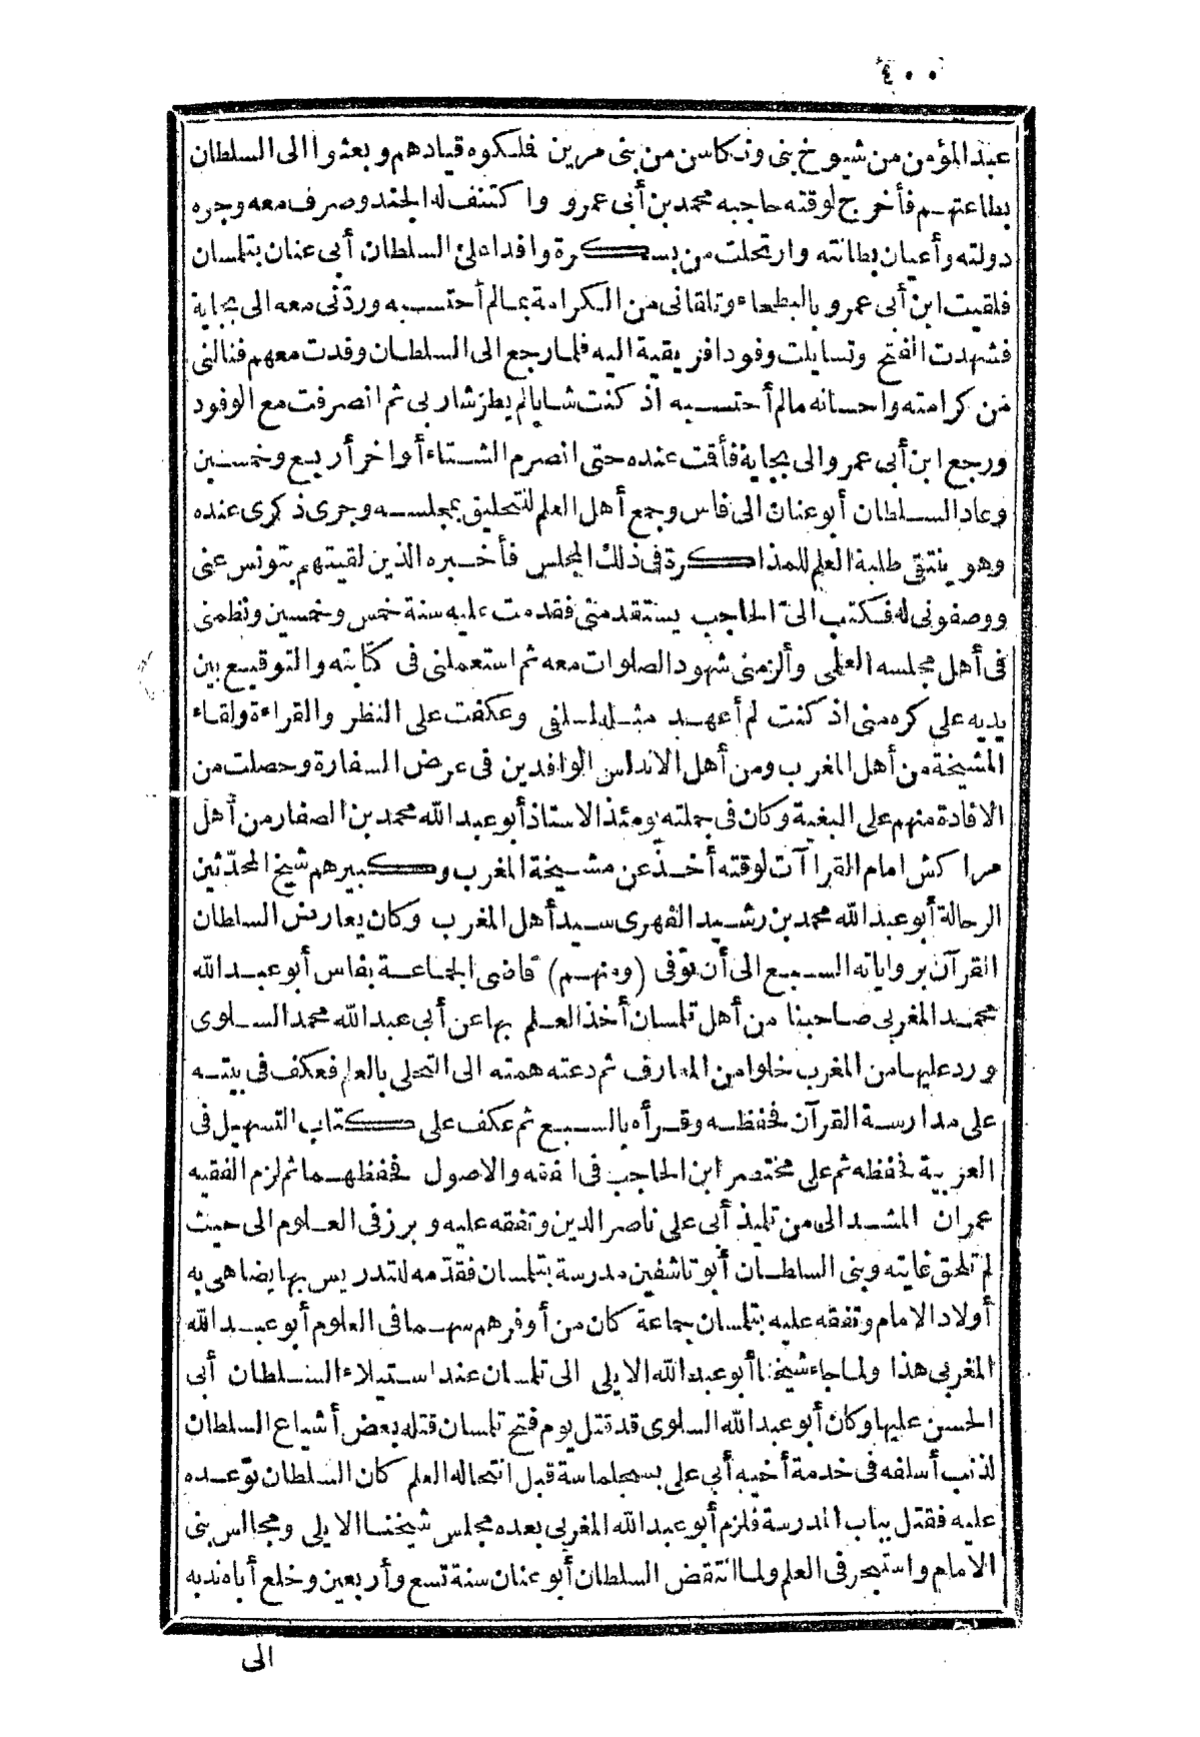 ٤٠٠
عبد المؤمن من شيوخ بنى ونكاسن من بنى مرين فلكوه قيادهم وبعثوا الى السلطان
بطاعتهم فأخرج لوقته حاجبه محمد بن أبى عمرو واكتنف له الجند وصرف معه وجره
دولته وأعيان بطانته وارتحلت من بسكرة وافدا على السلطان أبى عنان بتلمسان
فلقيت ابن أبى عمرو بالبطحاء وتلقانى من الكرامة بمالم أحتسبه وردّنى معه الى بجاية
فشهدت الفتح وتسايلت وفود افريقية اليه فلما رجع الى السلطان وفدت معهم فنالنى
من كرامته واحسانه مالم أحتسبه اذ كنت شابا لم يطر شاربى ثم انصرفت مع الوفود
ورجع ابن أبى عمرو الى بجاية فأقت عنده حتى انصرم الشتاء أواخر أربع وخمسين
وعاد السلطان أبو عنان الى فاس وجمع أهل العلم للتحليق بمجلسه وجرى ذكرى عنده
وهو ينتقى طلبة العلم للمذاكرة فى ذلك المجلس فأخبره الذين لقيتهم بتونس عنى
ووصفونى له فكتب الى الحاجب يستقدمنى فقدمت عليه سنة خمس وخمسين ونظمنى
فى أهل مجلسه العلمى وألزمنى شهود الصلوات معه ثم استعملنى فى كتابته والتوقيع بين
يديه على كره منى اذ كنت لم أعهد مثله لسلفى وعكفت على النظر والقراءة ولقاء
المشيخة من أهل المغرب ومن أهل الاندلس الوافدين فى عرض السفارة وحصلت من
الافادة منهم على البغية وكان فى جملته يومئذ الاستاذ أبو عبد الله محمد بن الصفار من أهل
مراكش امام القراآت لوقته أخذ عن مشيخة المغرب وكبيرهم شيخ المحدّثين
الرحالة أبو عبد الله محمد بن رشيد الفهرى سيد أهل المغرب وكان يعارض السلطان
القرآن برواياته السبع الى أن توفى (ومنهم) قاضى الجماعة بفاس أبو عبد الله
محمد المغربى صاحبنا من أهل تلمسان أخذ العلم بها عن أبى عبد الله محمد السلوى
ورد عليها من المغرب خلوا من المعارف ثم دعته همته الى التحلى بالعلم فعكف فى بيته
على مدارسة القرآن فحفظه وقرأه بالسبع ثم عكف على كتاب التسهيل فى
العربية فحفظه ثم على مختصر ابن الحاجب فى الفقه والاصول فحفظهما ثم لزم الفقيه
عمران المشدالى من تلميذ أبى على ناصر الدين وتفقه عليه وبرز فى العلوم الى حيث
لم تلحق غايته وبنى السلطان أبو تاشفين مدرسة بتلمسان فقدّمه للتدريس بها يضاهى به
أولاد الامام وتفقه عليه بتلمسان جماعة كان من أوفرهم سهما فى العلوم أبو عبد الله
المغربى هذا ولما جاء شيخنا أبو عبد الله الايلى الى تلمسان عند استيلاء السلطان أبى
الحسن عليها وكان أبو عبد الله السلوى قد قتل يوم فتح تلمسان قتله بعض أشياع السلطان
لذنب أسلفه فى خدمة أخيه أبى على بسجلماسة قبل انتحاله العلم كان السلطان توّعده
عليه فقتل بباب المدرسة فلزم أبو عبد الله المغربى بعده مجلس شيخنا الايلى ومجالس بنى
الامام واستبحر فى العلم ولما انتقض السلطان أبو عنان سنة تسع وأربعين وخلع أباه ندبه
الى